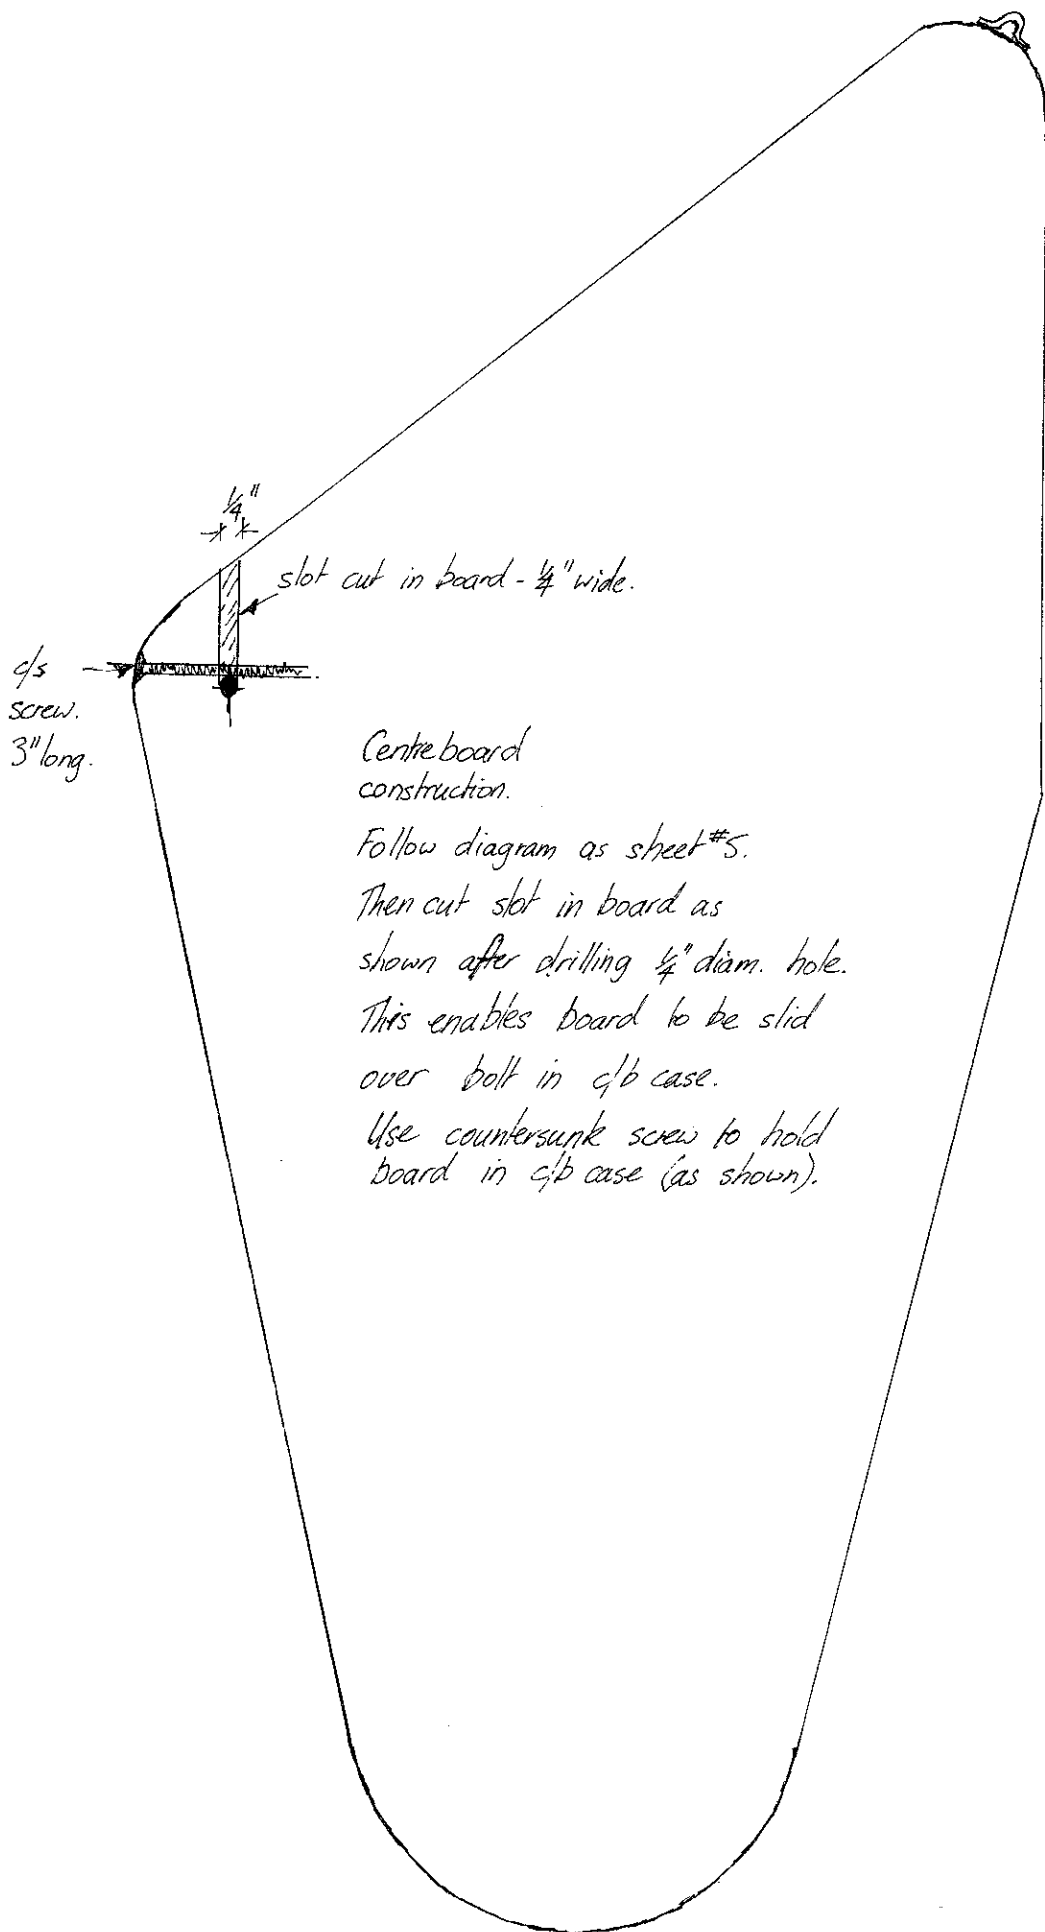 1/4"
slot cut in board - 1/4" wide.
c/s
screw.
3" long.
Centreboard
construction.
Follow diagram as sheet #5.
Then cut slot in board as
shown after drilling 1/4" diam. hole.
This enables board to be slid
over bolt in c/b case.
Use countersunk screw to hold
board in c/b case (as shown).